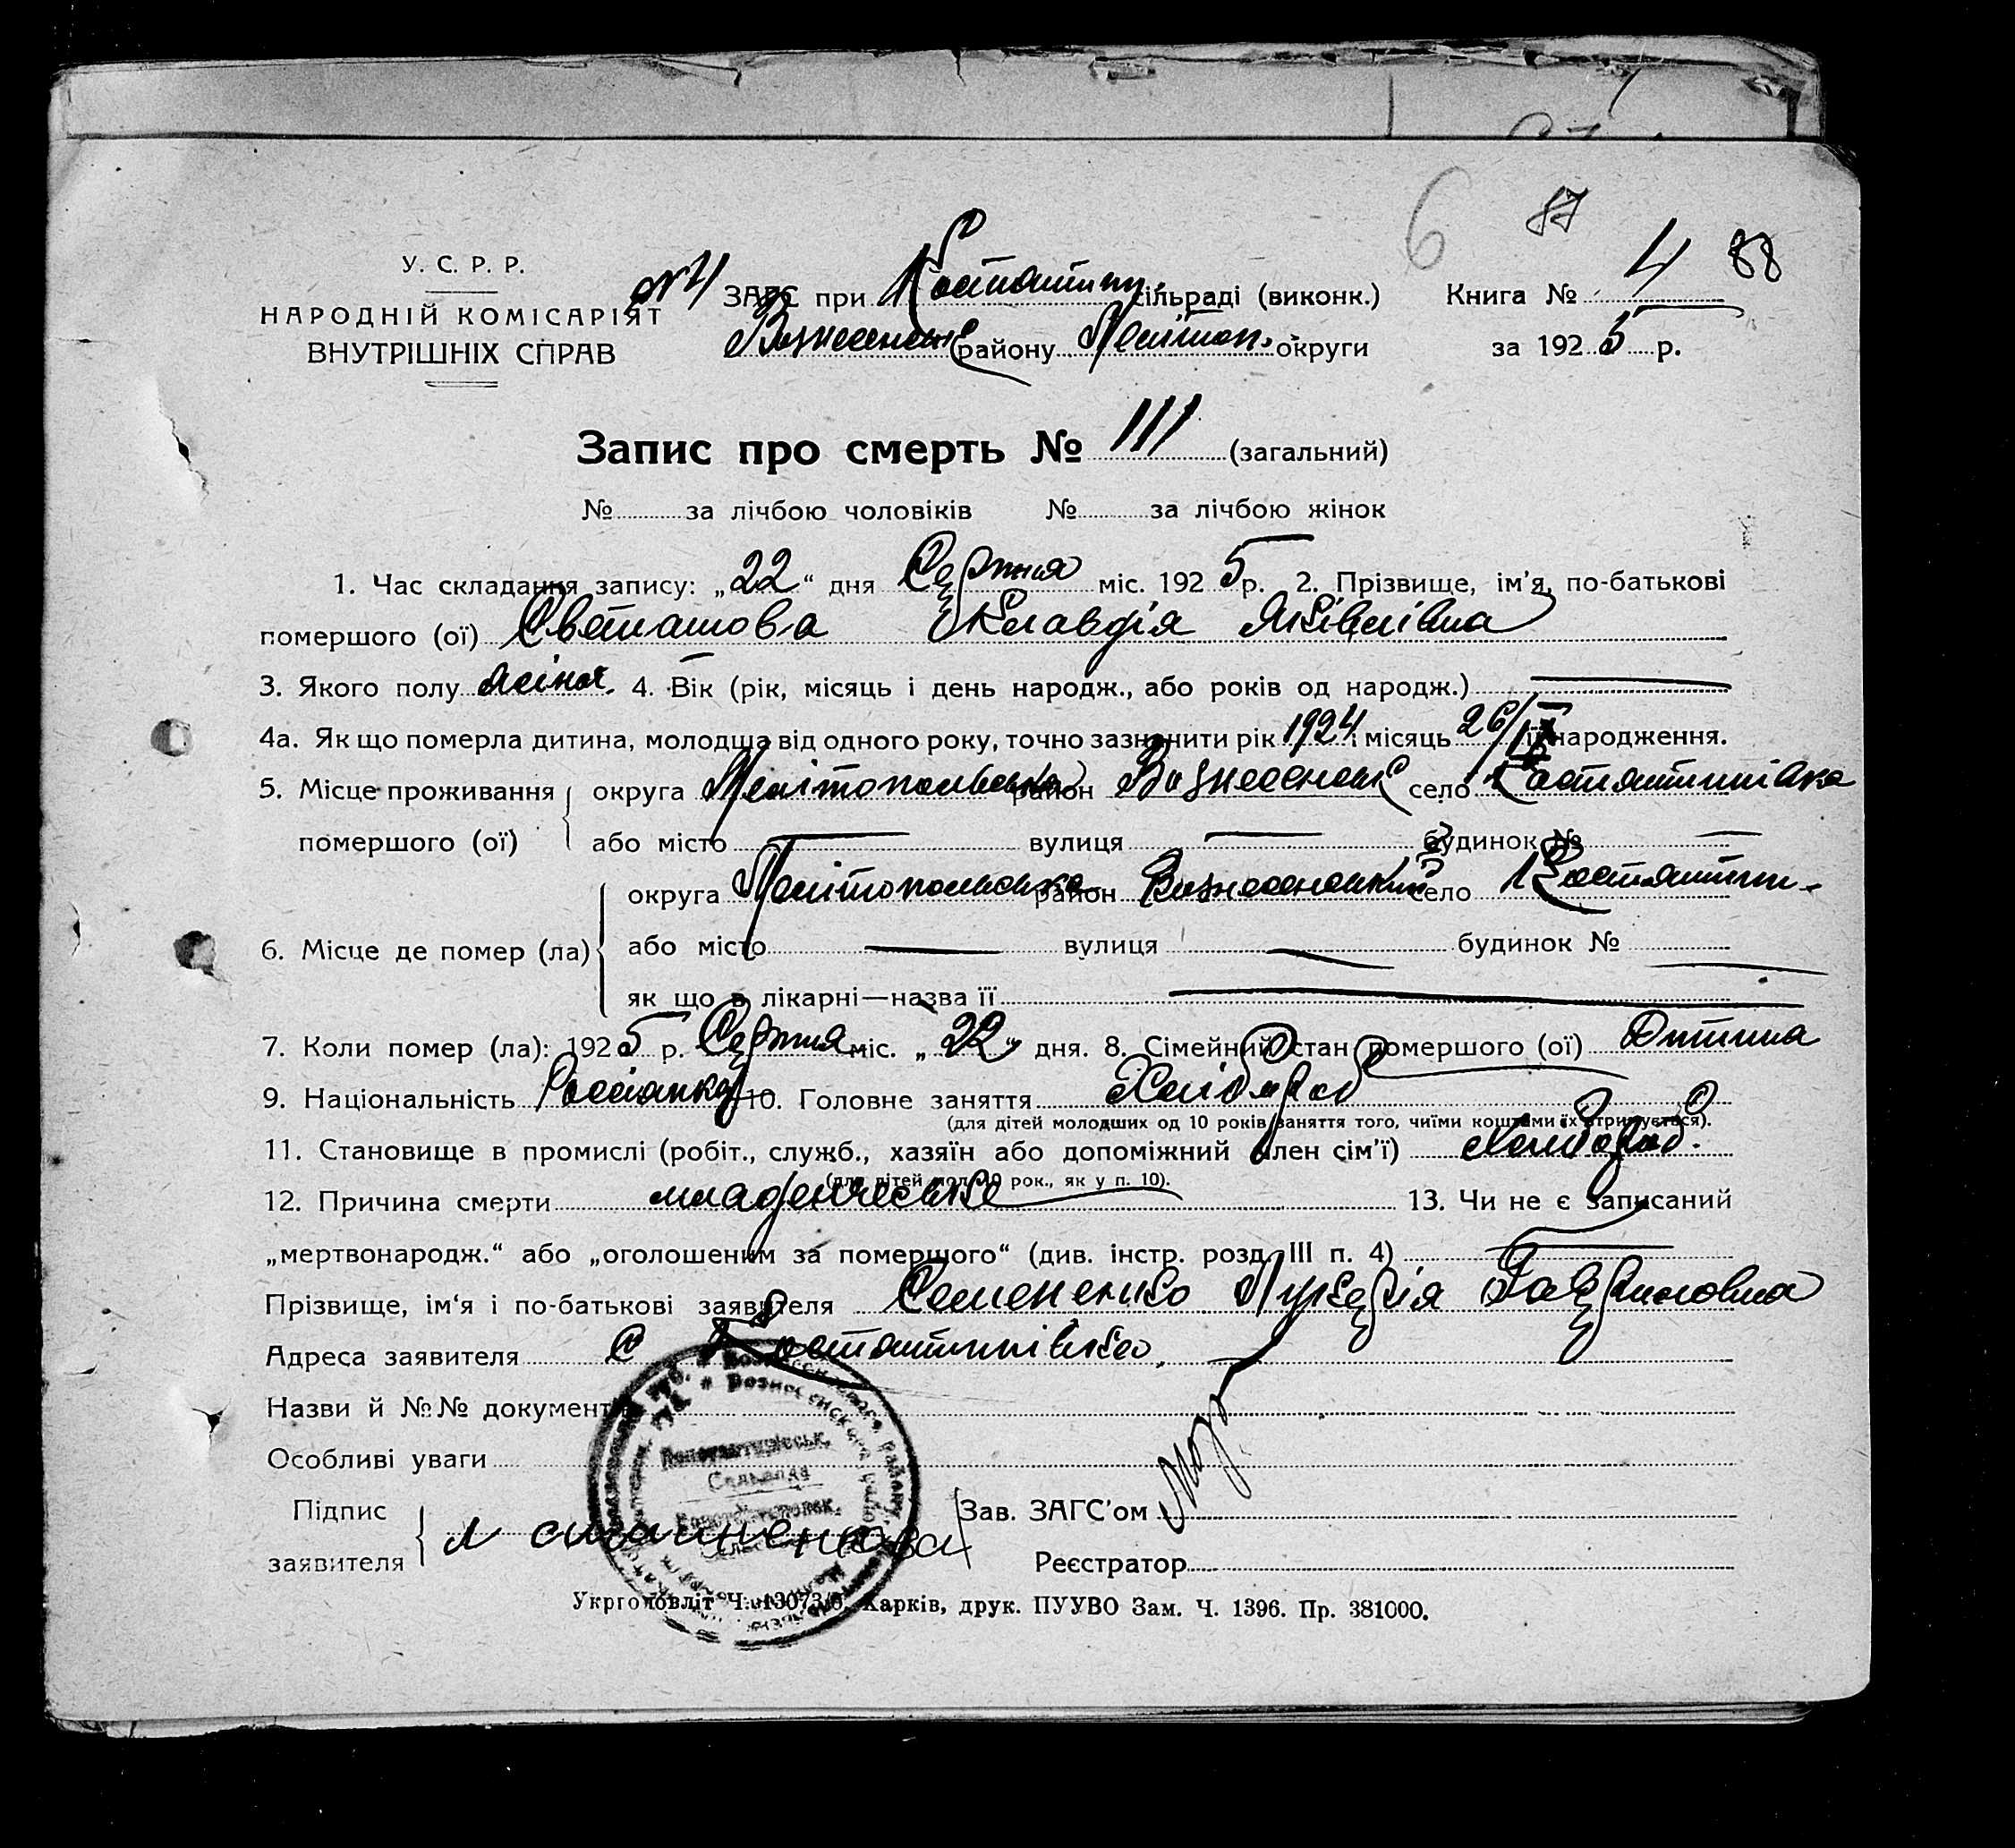 6 87
У. С. Р. Р.
НАРОДНІЙ КОМІСАРІЯТ
ВНУТРІШНІХ СПРАВ
ЗАГС при Костянтин. сільраді (виконк.) Книга № 4 88
Вознесенськ району Мелітоп. округи за 1925 р.
Запис про смерть № 111 (загальний)
№ за лічбою чоловіків № за лічбою жінок
1. Час складання запису: „22“ дня Серпня міс. 1925 р. 2. Прізвище, ім'я, по-батькові
помершого (ої) Сваташова Клавдія Яківлівна
3. Якого полу жіноч. 4. Вік (рік, місяць і день народж., або років од народж.)
4а. Як що померла дитина, молодша від одного року, точно зазначити рік 1924 і місяць 26/IX її народження.
5. Місце проживання округа Мелітопольська район Вознесенськ село Костянтинівка
помершого (ої) або місто вулиця будинок №
округа Мелітопольська район Вознесенський село Костянтин.
6. Місце де помер (ла) або місто вулиця будинок №
як що в лікарні—назва її
7. Коли помер (ла): 1925 р. Серпня міс. „22“ дня. 8. Сімейний стан помершого (ої) Дитина
9. Національність Россіянка 10. Головне заняття Хлібороб
(для дітей молодших од 10 років заняття того, чиїми коштами їх утримується).
11. Становище в промислі (робіт., служб., хазяїн або допоміжний член сім'ї) Хлібороб.
(для дітей мол. 10 рок., як у п. 10).
12. Причина смерти младенческая 13. Чи не є записаний
„мертвонародж.“ або „оголошеним за помершого“ (див. інстр. розд. III п. 4)
Прізвище, ім'я і по-батькові заявителя Семененко Лукерія Гавриловна
Адреса заявителя с Костянтинівка.
Назви й №№ документів
Особливі уваги
Підпис Зав. ЗАГС'ом
заявителя Реєстратор
Укрголовліт Ч. 13073/б. Харків, друк. ПУУВО Зам. Ч. 1396. Пр. 381000.